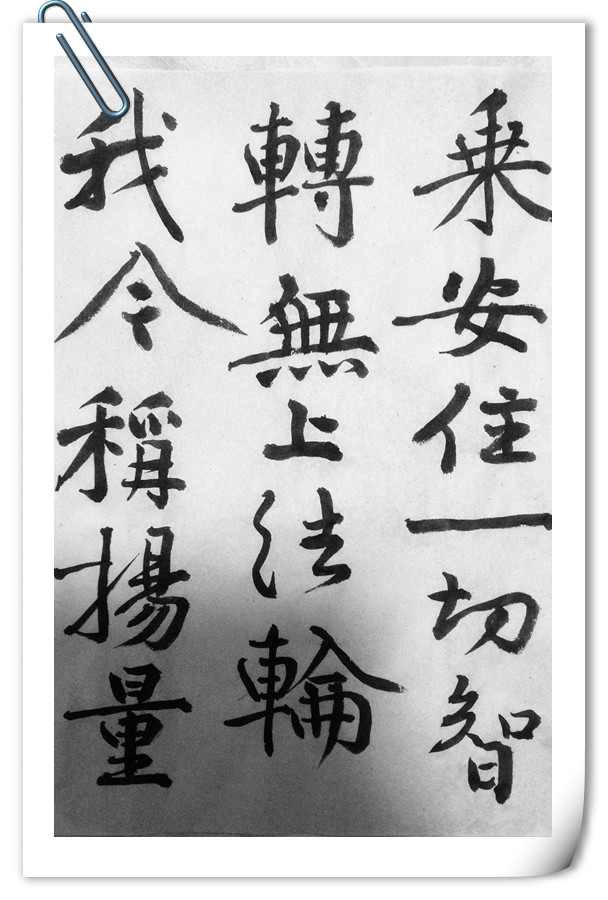 乗安住一切智
轉無上法輪
我今稱揚量